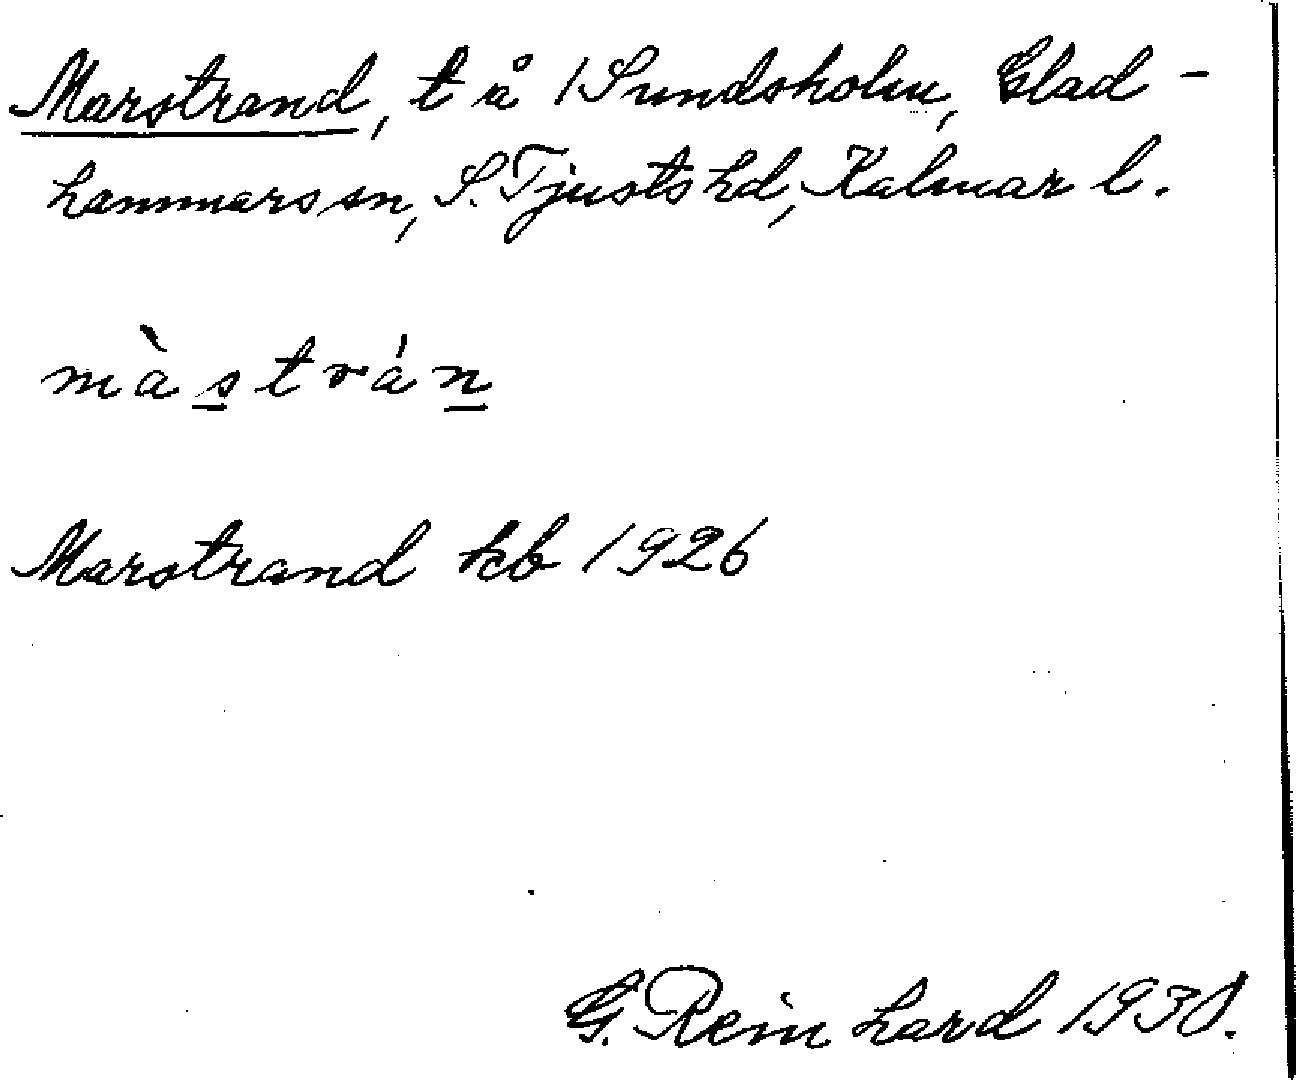 Marstrand, t å 1 Sundsholm, Glad-
hammars sn, S. Tjusts hd, Kalmar l.
màstrán
Marstrand kb 1926
G. Reinhard 1930.